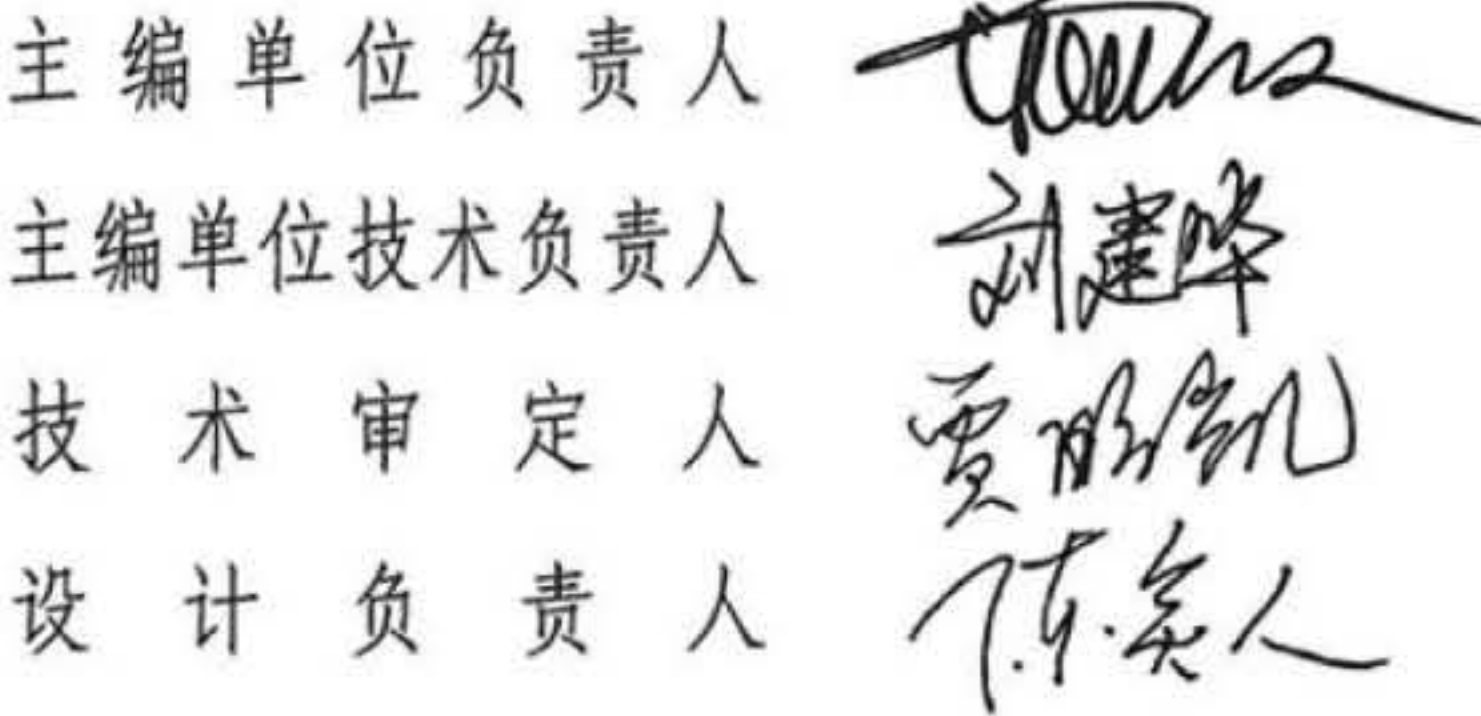 主编单位负责人
主编单位技术负责人 刘建华
技术审定人 贾
设计负责人 陈 人